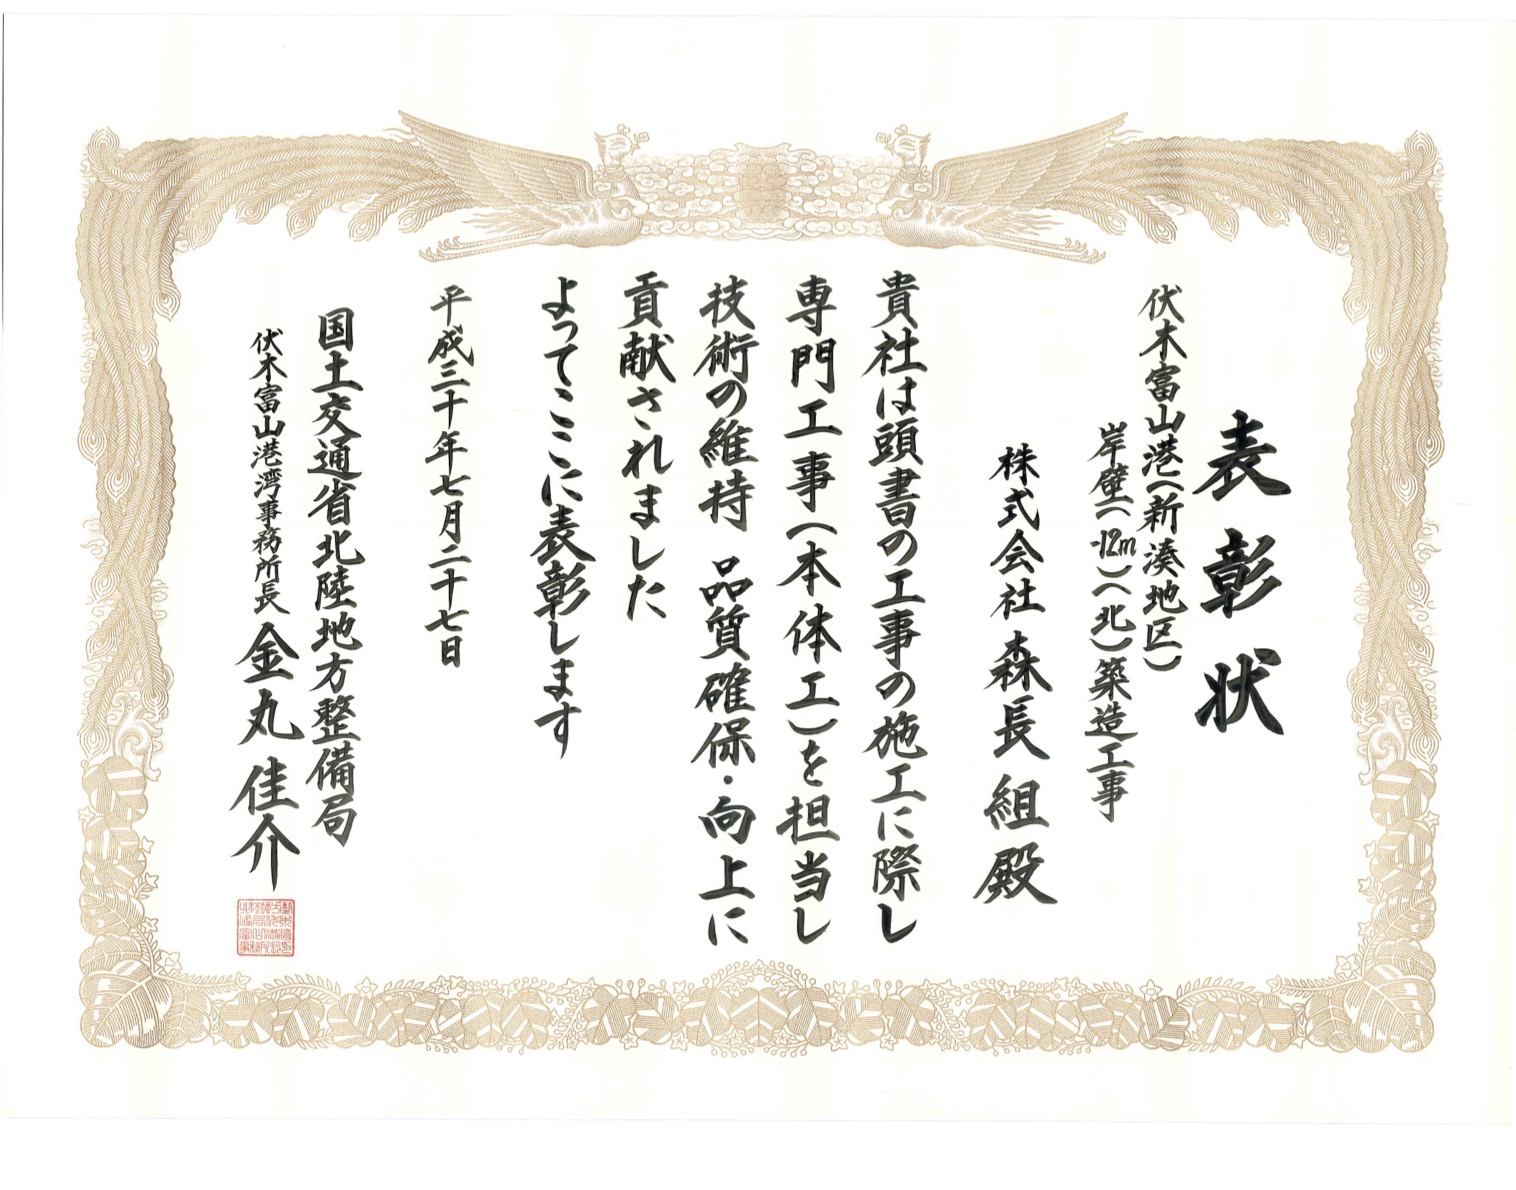 表彰状
伏木富山港(新湊地区)
岸壁(-12m)(北)築造工事
株式会社 森長組 殿
貴社は頭書の工事の施工に際し
専門工事(本体工)を担当し
技術の維持 品質確保・向上に
貢献されました
よってここに表彰します
平成三十年七月二十七日
国土交通省北陸地方整備局
伏木富山港湾事務所長 金丸 佳介